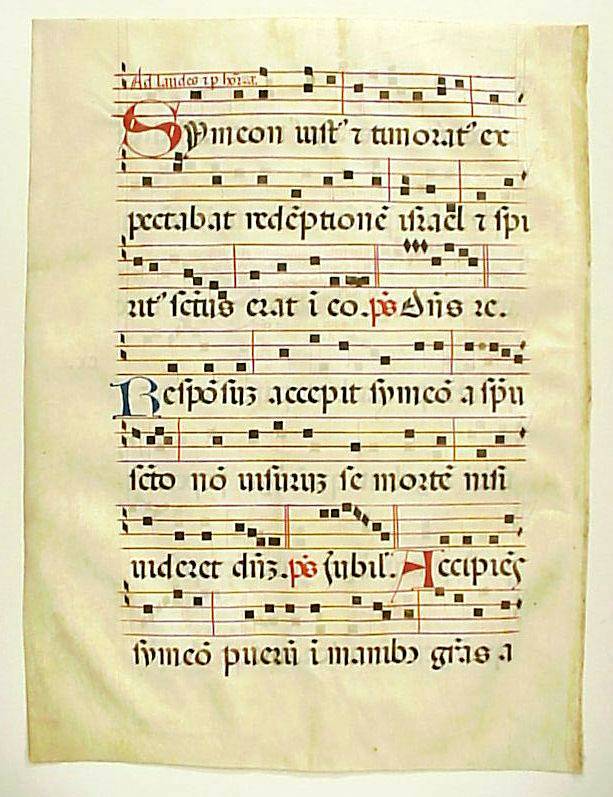 Ad laudes ⁊ p horas.
Symeon iust' ⁊ timorat' ex
pectabat redēptionē isrl̄ael ⁊ spi
rit' sc̄tus erat ī eo. ps̄ Dn̄s re.
Respōsuꝫ accepit symeō a spū
sc̄to nō uisuruꝫ se mortē nisi
uideret dn̄ꝫ. ps̄ Iubil'. Accipiēs
symeō puerū ī manibꝫ gr̄as a